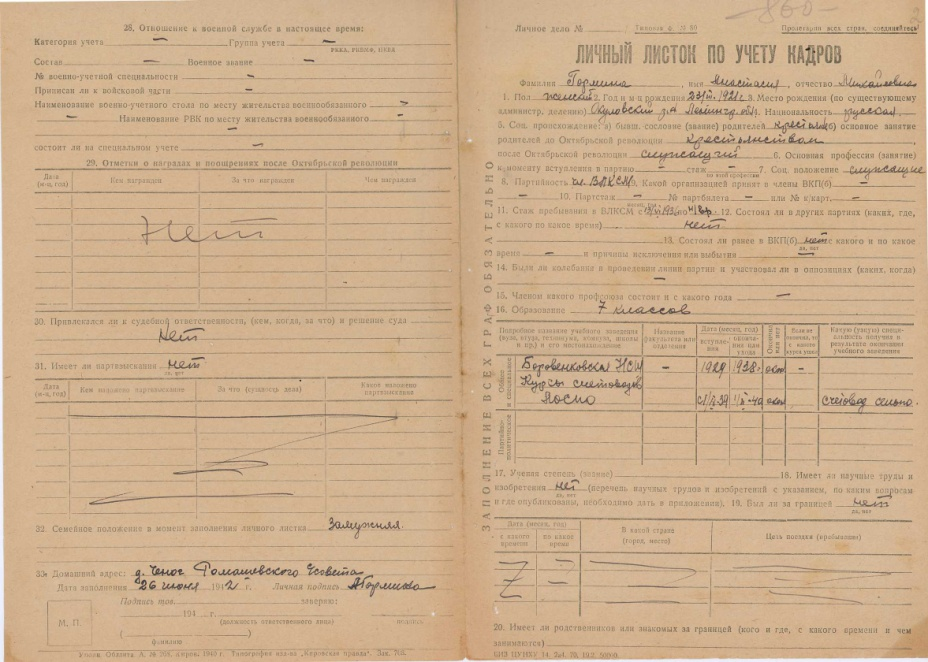 28. Отношение к военной службе в настоящее время:
Категория учета — Группа учета —
РККА, РККФЛ, НКВД
Состав — Военное звание —
№ военно-учетной специальности —
Приписан ли к войсковой части —
Наименование военно-учетного стола по месту жительства военнообязанного —
— Наименование РВК по месту жительства военнообязанного —
состоит ли на специальном учете —
29. Отметки о наградах и поощрениях после Октябрьской революции
Дата (м-ц, год) Кем награжден За что награжден Чем награжден
Нет
30. Привлекался ли к судебной ответственности, (кем, когда, за что) и решение суда
Нет
31. Имеет ли партвзыскания нет
да, нет
Дата (м-ц, год) Кем наложено партвзыскание За что (сущность дела) Какое наложено партвзыскание
32. Семейное положение в момент заполнения личного листка Замужняя.
33. Домашний адрес: д.
Дата заполнения 26 июня 1942 г. Личная подпись
Подпись тов. заверяю:
194 г.
(должность ответственного лица)
М. П.
фамилию
-860-
Личное дело № Типовая ф. № 90 Пролетарии всех стран, соединяйтесь!
ЛИЧНЫЙ ЛИСТОК ПО УЧЕТУ КАДРОВ
Фамилия , имя Анастасия, отчество Михайловна
1. Пол женский 2. Год и м-ц рождения 1921 г. 3. Место рождения (по существующему
административ. делению) Окуловский р-н Ленингр. обл. 4. Национальность русская.
5. Соц. происхождение: а) бывш. сословие (звание) родителей б) основное занятие
родителей до Октябрьской революции крестьянством
после Октябрьской революции служащий 6. Основная профессия (занятие)
к моменту вступления в партию — стаж — 7. Соц. положение служащие
по этой профессии
8. Партийность чл. ВЛКСМ 9. Какой организацией принят в члены ВКП(б) —
— 10. Партстаж — № партбилета — или № к/карт. —
11. Стаж пребывания в ВЛКСМ с 12. Состоял ли в других партиях (каких, где,
с какого по какое время) нет
13. Состоял ли ранее в ВКП(б) нет с какого и по какое
да, нет
время — и причины исключения или выбытия —
14. Были ли колебания в проведении линии партии и участвовал ли в оппозициях (каких, когда)
—
15. Членом какого профсоюза состоит и с какого года —
16. Образование 7 классов
ЗАПОЛНЕНИЕ ВСЕХ ГРАФ ОБЯЗАТЕЛЬНО
Подробное название учебного заведения Название факультета или отделения Дата (месяц, год) вступления окончания или ухода Окончил или нет Какую (узкую) специальность получил в результате окончания учебного заведения
Общее и специальное
Боровенковская НСШ — 1929 1938 г. окон —
Курсы счетоводов
счетовод сельпо.
17. Ученая степень (звание) 18. Имеет ли научные труды и
изобретения нет (перечень научных трудов и изобретений с указанием, по каким вопросам
да, нет
и где опубликованы, необходимо дать в приложении). 19. Был ли за границей нет
да, нет
Дата (месяц, год) В какой стране (город, место) Цель поездки (пребывания)
с какого времени по какое время
20. Имеет ли родственников или знакомых за границей (кого и где, с какого времени и чем
занимаются)